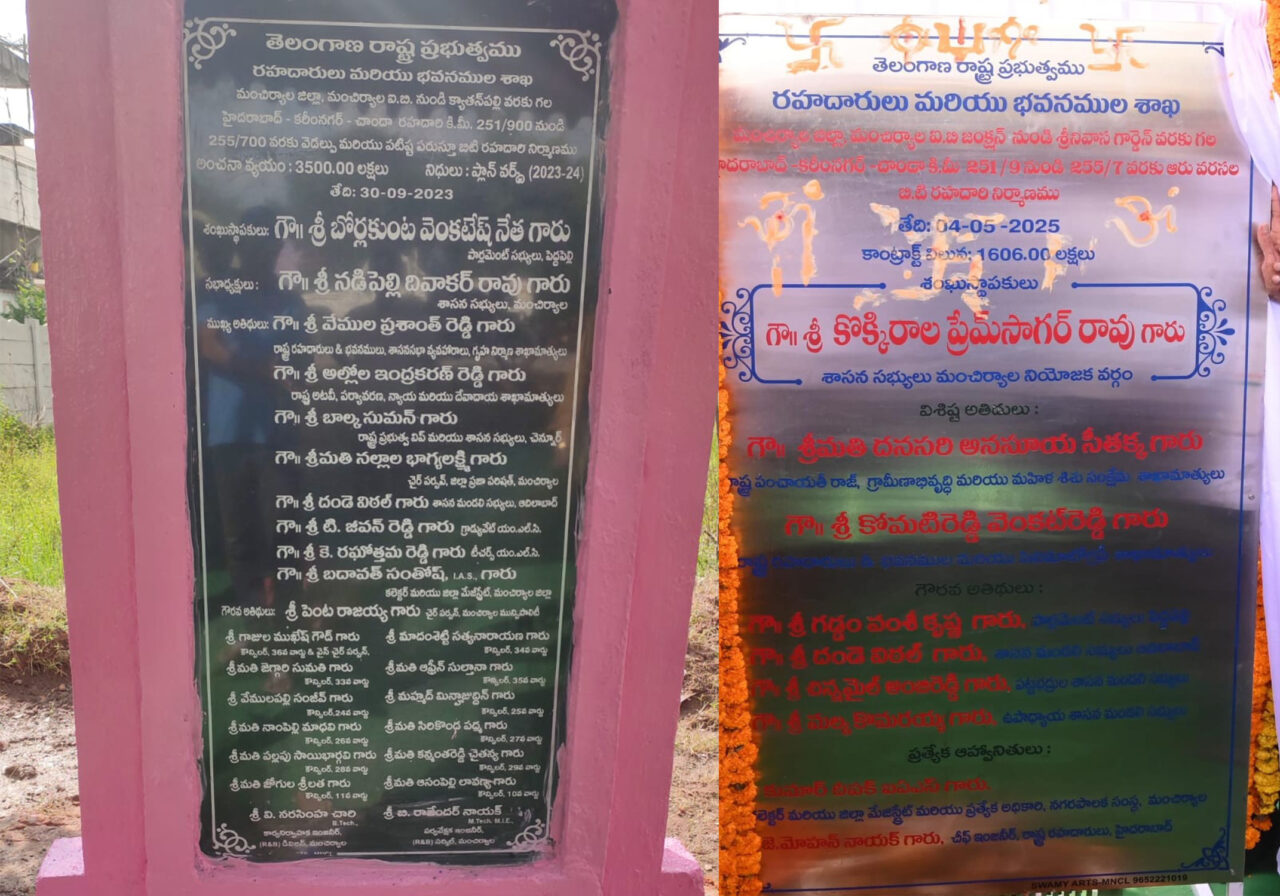 తెలంగాణ రాష్ట్ర ప్రభుత్వము
రహదారులు మరియు భవనముల శాఖ
మంచిర్యాల జిల్లా, మంచిర్యాల ఐ.బి. నుండి క్యాతన్‌పల్లి వరకు గల
హైదరాబాద్ - కరీంనగర్ - చాందా రహదారి కి.మీ. 251/900 నుండి
255/700 వరకు వెడల్పు మరియు పటిష్ట పరుస్తూ బిటి రహదారి నిర్మాణము
అంచనా వ్యయం : 3500.00 లక్షలు నిధులు : ప్లాన్ వర్క్స్ (2023-24)
తేది: 30-09-2023
శంఖుస్థాపకులు: గౌ॥ శ్రీ బోర్లకుంట వెంకటేష్ నేత గారు
పార్లమెంట్ సభ్యులు, పెద్దపెల్లి
సభాధ్యక్షులు: గౌ॥ శ్రీ నడిపెల్లి దివాకర్ రావు గారు
శాసన సభ్యులు, మంచిర్యాల
ముఖ్య అతిథులు: గౌ॥ శ్రీ వేముల ప్రశాంత్ రెడ్డి గారు
రాష్ట్ర రహదారులు & భవనములు, శాసనసభా వ్యవహారాలు, గృహ నిర్మాణ శాఖామాత్యులు
గౌ॥ శ్రీ అల్లోల ఇంద్రకరణ్ రెడ్డి గారు
రాష్ట్ర అటవీ, పర్యావరణ, న్యాయ మరియు దేవాదాయ శాఖామాత్యులు
గౌ॥ శ్రీ బాల్క సుమన్ గారు
రాష్ట్ర ప్రభుత్వ విప్ మరియు శాసన సభ్యులు, చెన్నూర్
గౌ॥ శ్రీమతి నల్లాల భాగ్యలక్ష్మి గారు
చైర్ పర్సన్, జిల్లా ప్రజా పరిషత్, మంచిర్యాల
గౌ॥ శ్రీ దండె విఠల్ గారు శాసన మండలి సభ్యులు, ఆదిలాబాద్
గౌ॥ శ్రీ టి. జీవన్ రెడ్డి గారు గ్రాడ్యువేట్ యం.ఎల్.సి.
గౌ॥ శ్రీ కె. రఘోత్తమ రెడ్డి గారు టీచర్స్ యం.ఎల్.సి.
గౌ॥ శ్రీ బదావత్ సంతోష్, I.A.S., గారు
కలెక్టర్ మరియు జిల్లా మేజిస్ట్రేట్, మంచిర్యాల జిల్లా
గౌరవ అతిథులు: శ్రీ పెంట రాజయ్య గారు చైర్ పర్సన్, మంచిర్యాల మున్సిపాలిటీ
శ్రీ గాజుల ముఖేష్ గౌడ్ గారు
కౌన్సిలర్, 36వ వార్డు & వైస్ చైర్ పర్సన్,
శ్రీమతి జెగ్గారి సుమతి గారు
కౌన్సిలర్, 33వ వార్డు
శ్రీ వేములపల్లి సంజీవ్ గారు
కౌన్సిలర్,24వ వార్డు
శ్రీమతి నాంపల్లి మాధవి గారు
కౌన్సిలర్, 26వ వార్డు
శ్రీమతి పల్లపు సాయిభార్గవి గారు
కౌన్సిలర్, 28వ వార్డు
శ్రీమతి జోగుల శ్రీలత గారు
కౌన్సిలర్, 11వ వార్డు
శ్రీ మాదంశెట్టి సత్యనారాయణ గారు
కౌన్సిలర్, 34వ వార్డు
శ్రీమతి ఆఫ్రీన్ సుల్తానా గారు
కౌన్సిలర్, 35వ వార్డు
శ్రీ మహ్మద్ మిన్హాజుద్దిన్ గారు
కౌన్సిలర్, 25వ వార్డు
శ్రీమతి సిరికొండ పద్మ గారు
కౌన్సిలర్, 27వ వార్డు
శ్రీమతి కన్మంతరెడ్డి చైతన్య గారు
కౌన్సిలర్, 29వ వార్డు
శ్రీమతి ఆసంపెల్లి లావణ్య గారు
కౌన్సిలర్, 10వ వార్డు
శ్రీ వి. నరసింహ చారి
M.Tech.,
కార్యనిర్వాహక ఇంజనీర్,
(R&B) డివిజన్, మంచిర్యాల
శ్రీ బి. రాజేందర్ నాయక్
M.Tech. M.I.E.,
పర్యవేక్షక ఇంజనీర్,
(R&B) సర్కిల్, మంచిర్యాల
తెలంగాణ రాష్ట్ర ప్రభుత్వము
రహదారులు మరియు భవనముల శాఖ
మంచిర్యాల జిల్లా, మంచిర్యాల ఐ.బి జంక్షన్ నుండి శ్రీనివాస గార్డెన్ వరకు గల
హైదరాబాద్ -కరీంనగర్ -చాందా కి.మీ 251/9 నుండి 255/7 వరకు ఆరు వరసల
బి.టి రహదారి నిర్మాణము
తేది: 04-05 -2025
కాంట్రాక్ట్ విలువ: 1606.00 లక్షలు
శంఖుస్థాపకులు
గౌ॥ శ్రీ కొక్కిరాల ప్రేమ్‌సాగర్ రావు గారు
శాసన సభ్యులు మంచిర్యాల నియోజక వర్గం
విశిష్ట అతిథులు :
గౌ॥ శ్రీమతి దనసరి అనసూయ సీతక్క గారు
రాష్ట్ర పంచాయతీ రాజ్, గ్రామీణాభివృద్ధి మరియు మహిళ శిశు సంక్షేమ శాఖామాత్యులు
గౌ॥ శ్రీ కోమటిరెడ్డి వెంకట్‌రెడ్డి గారు
రాష్ట్ర రహదారులు & భవనముల మరియు సినిమాటోగ్రఫీ శాఖామాత్యులు
గౌరవ అతిథులు :
గౌ॥ శ్రీ గడ్డం వంశీ కృష్ణ గారు, పార్లమెంట్ సభ్యులు పెద్దపల్లి
గౌ॥ శ్రీ దండె విఠల్ గారు, శాసన మండలి సభ్యులు ఆదిలాబాద్
గౌ॥ శ్రీ చిన్నమైల్ అంజిరెడ్డి గారు, పట్టభద్రుల శాసన మండలి సభ్యులు
గౌ॥ శ్రీ మల్క కొమరయ్య గారు, ఉపాధ్యాయ శాసన మండలి సభ్యులు
ప్రత్యేక ఆహ్వానితులు :
కుమార్ దీపక్ ఐఏఎస్ గారు,
కలెక్టర్ మరియు జిల్లా మేజిస్ట్రేట్ మరియు ప్రత్యేక అధికారి, నగరపాలక సంస్థ, మంచిర్యాల
జె.మోహన్ నాయక్ గారు, చీఫ్ ఇంజనీర్, రాష్ట్ర రహదారులు, హైదరాబాద్
SWAMY ARTS-MNCL 9652221019